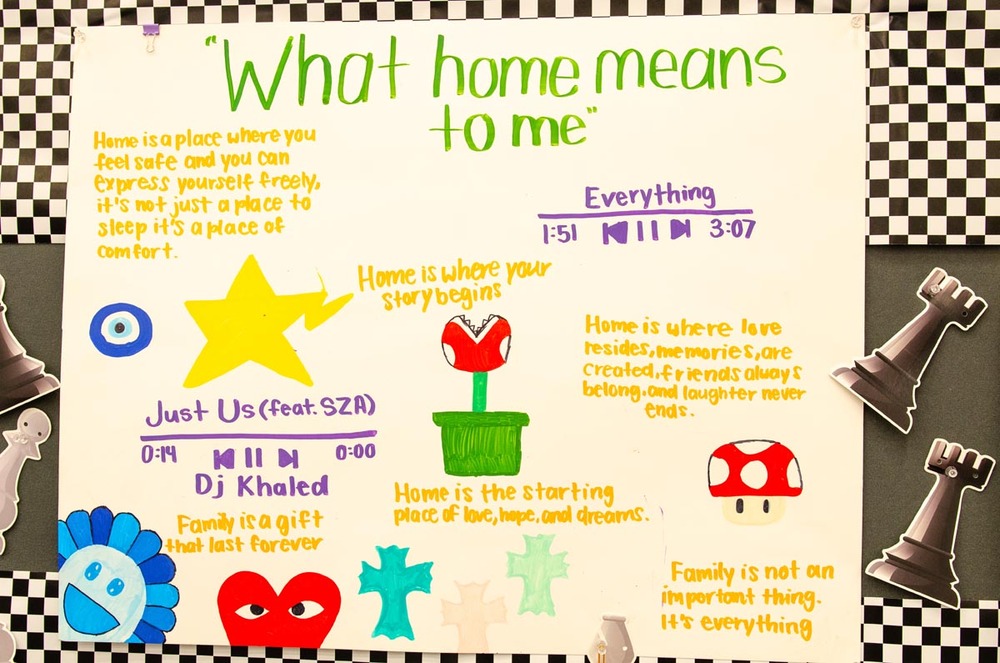 "What home means
to me"
Home is a place where you
feel safe and you can
express yourself freely,
it's not just a place to
sleep it's a place of
comfort.
Everything
1:51 3:07
Home is where your
story begins
Home is where love
resides, memories, are
created, friends always
belong, and laughter never
ends.
Just Us (feat. SZA)
0:14 0:00
Dj Khaled
Home is the starting
place of love, hope, and dreams.
Family is a gift
that last forever
Family is not an
important thing.
It's everything